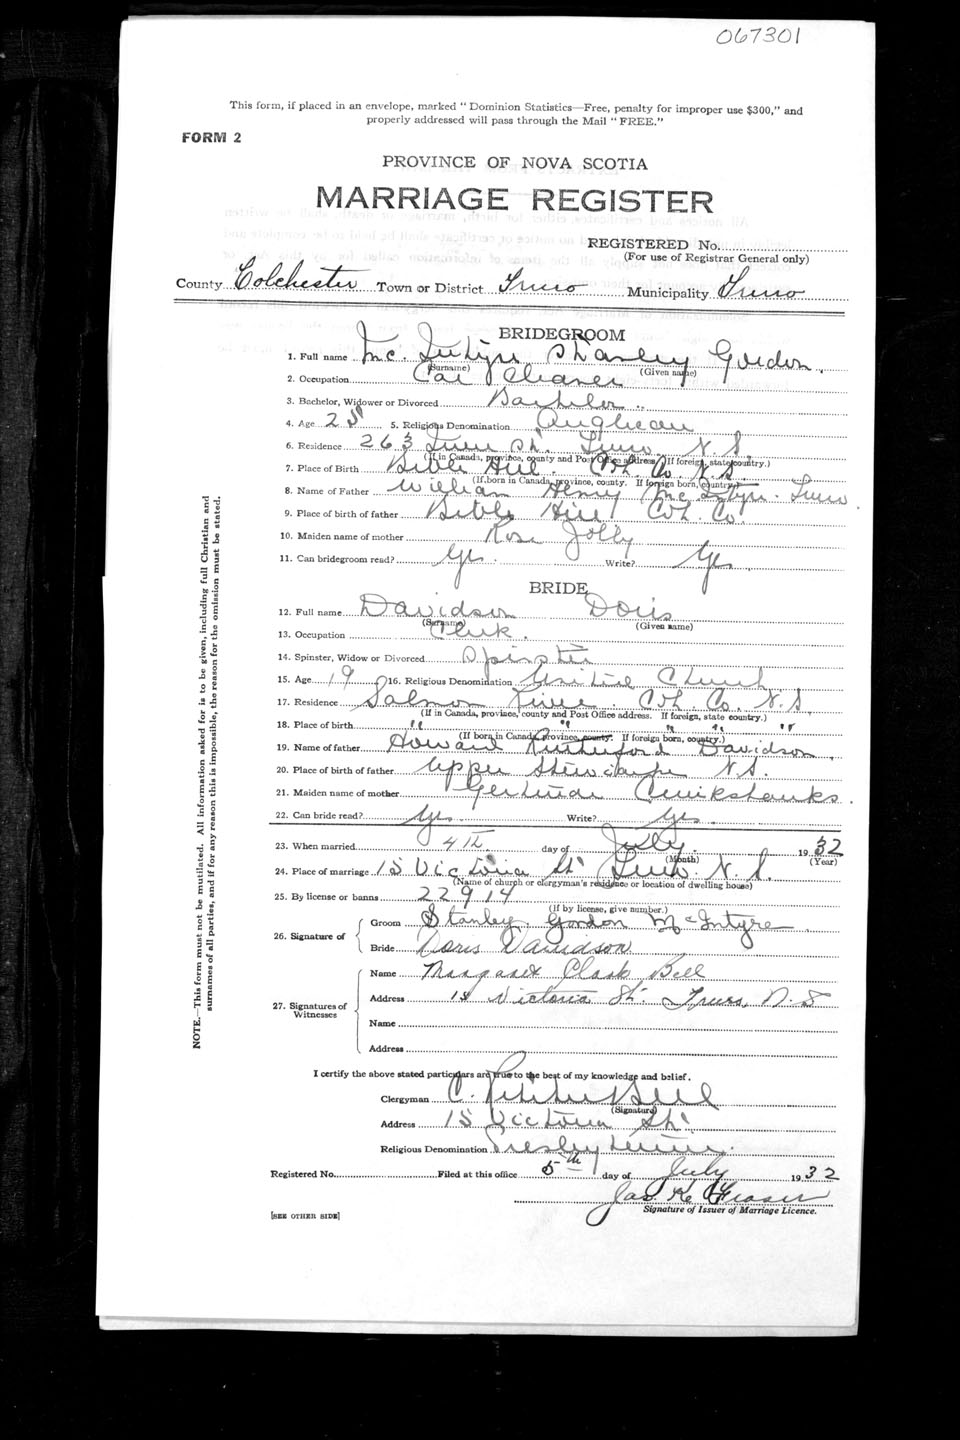 067301
This form, if placed in an envelope, marked "Dominion Statistics—Free, penalty for improper use $300," and
properly addressed will pass through the Mail "FREE."
FORM 2
PROVINCE OF NOVA SCOTIA
MARRIAGE REGISTER
REGISTERED No.
(For use of Registrar General only)
County Colchester Town or District Truro Municipality Truro
BRIDEGROOM
1. Full name Mc.Intyre Stanley Gordon.
(Surname) (Given name)
2. Occupation Car Cleaner
3. Bachelor, Widower or Divorced Bachelor
4. Age 25 5. Religious Denomination Anglican
6. Residence 263 St. Truro N.S.
(If in Canada, province, county and Post Office address. If foreign, state country.)
7. Place of Birth Bible Hill. Col. Co. N.S.
(If born in Canada, province, county. If foreign born, country.)
8. Name of Father William Henry McIntyre. Truro
9. Place of birth of father Bible Hill Col. Co.
10. Maiden name of mother Rose Jolly
11. Can bridegroom read? Yes. Write? Yes.
BRIDE
12. Full name Davidson Doris
(Surname) (Given name)
13. Occupation Clerk.
14. Spinster, Widow or Divorced Spinster
15. Age 19 16. Religious Denomination United Church
17. Residence Salmon River. Col. Co. N.S.
(If in Canada, province, county and Post Office address. If foreign, state country.)
18. Place of birth " " " " "
(If born in Canada, province, county. If foreign born, country.)
19. Name of father Howard Rutherford Davidson.
20. Place of birth of father Upper Stewiacke N.S.
21. Maiden name of mother Gertrude Cruikshanks.
22. Can bride read? Yes Write? Yes.
23. When married 4th day of July. 1932
(Month) (Year)
24. Place of marriage 15 Victoria St Truro. N.S.
(Name of church or clergyman's residence or location of dwelling house)
25. By license or banns 22914
(If by license, give number.)
26. Signature of Groom Stanley Gordon McIntyre
Bride Doris Davidson
27. Signatures of Witnesses Name Margaret Clark Bell
Address 15 Victoria St. Truro, N.S
Name
Address
I certify the above stated particulars are true to the best of my knowledge and belief.
Clergyman C. Bell
(Signature)
Address 15 Victoria St.
Religious Denomination Presbyterian.
Registered No. Filed at this office 5th day of July 1932
Jas K Fraser
Signature of Issuer of Marriage Licence.
[SEE OTHER SIDE]
NOTE.—This form must not be mutilated. All information asked for is to be given, including full Christian and
surnames of all parties, and if for any reason this is impossible, the reason for the omission must be stated.